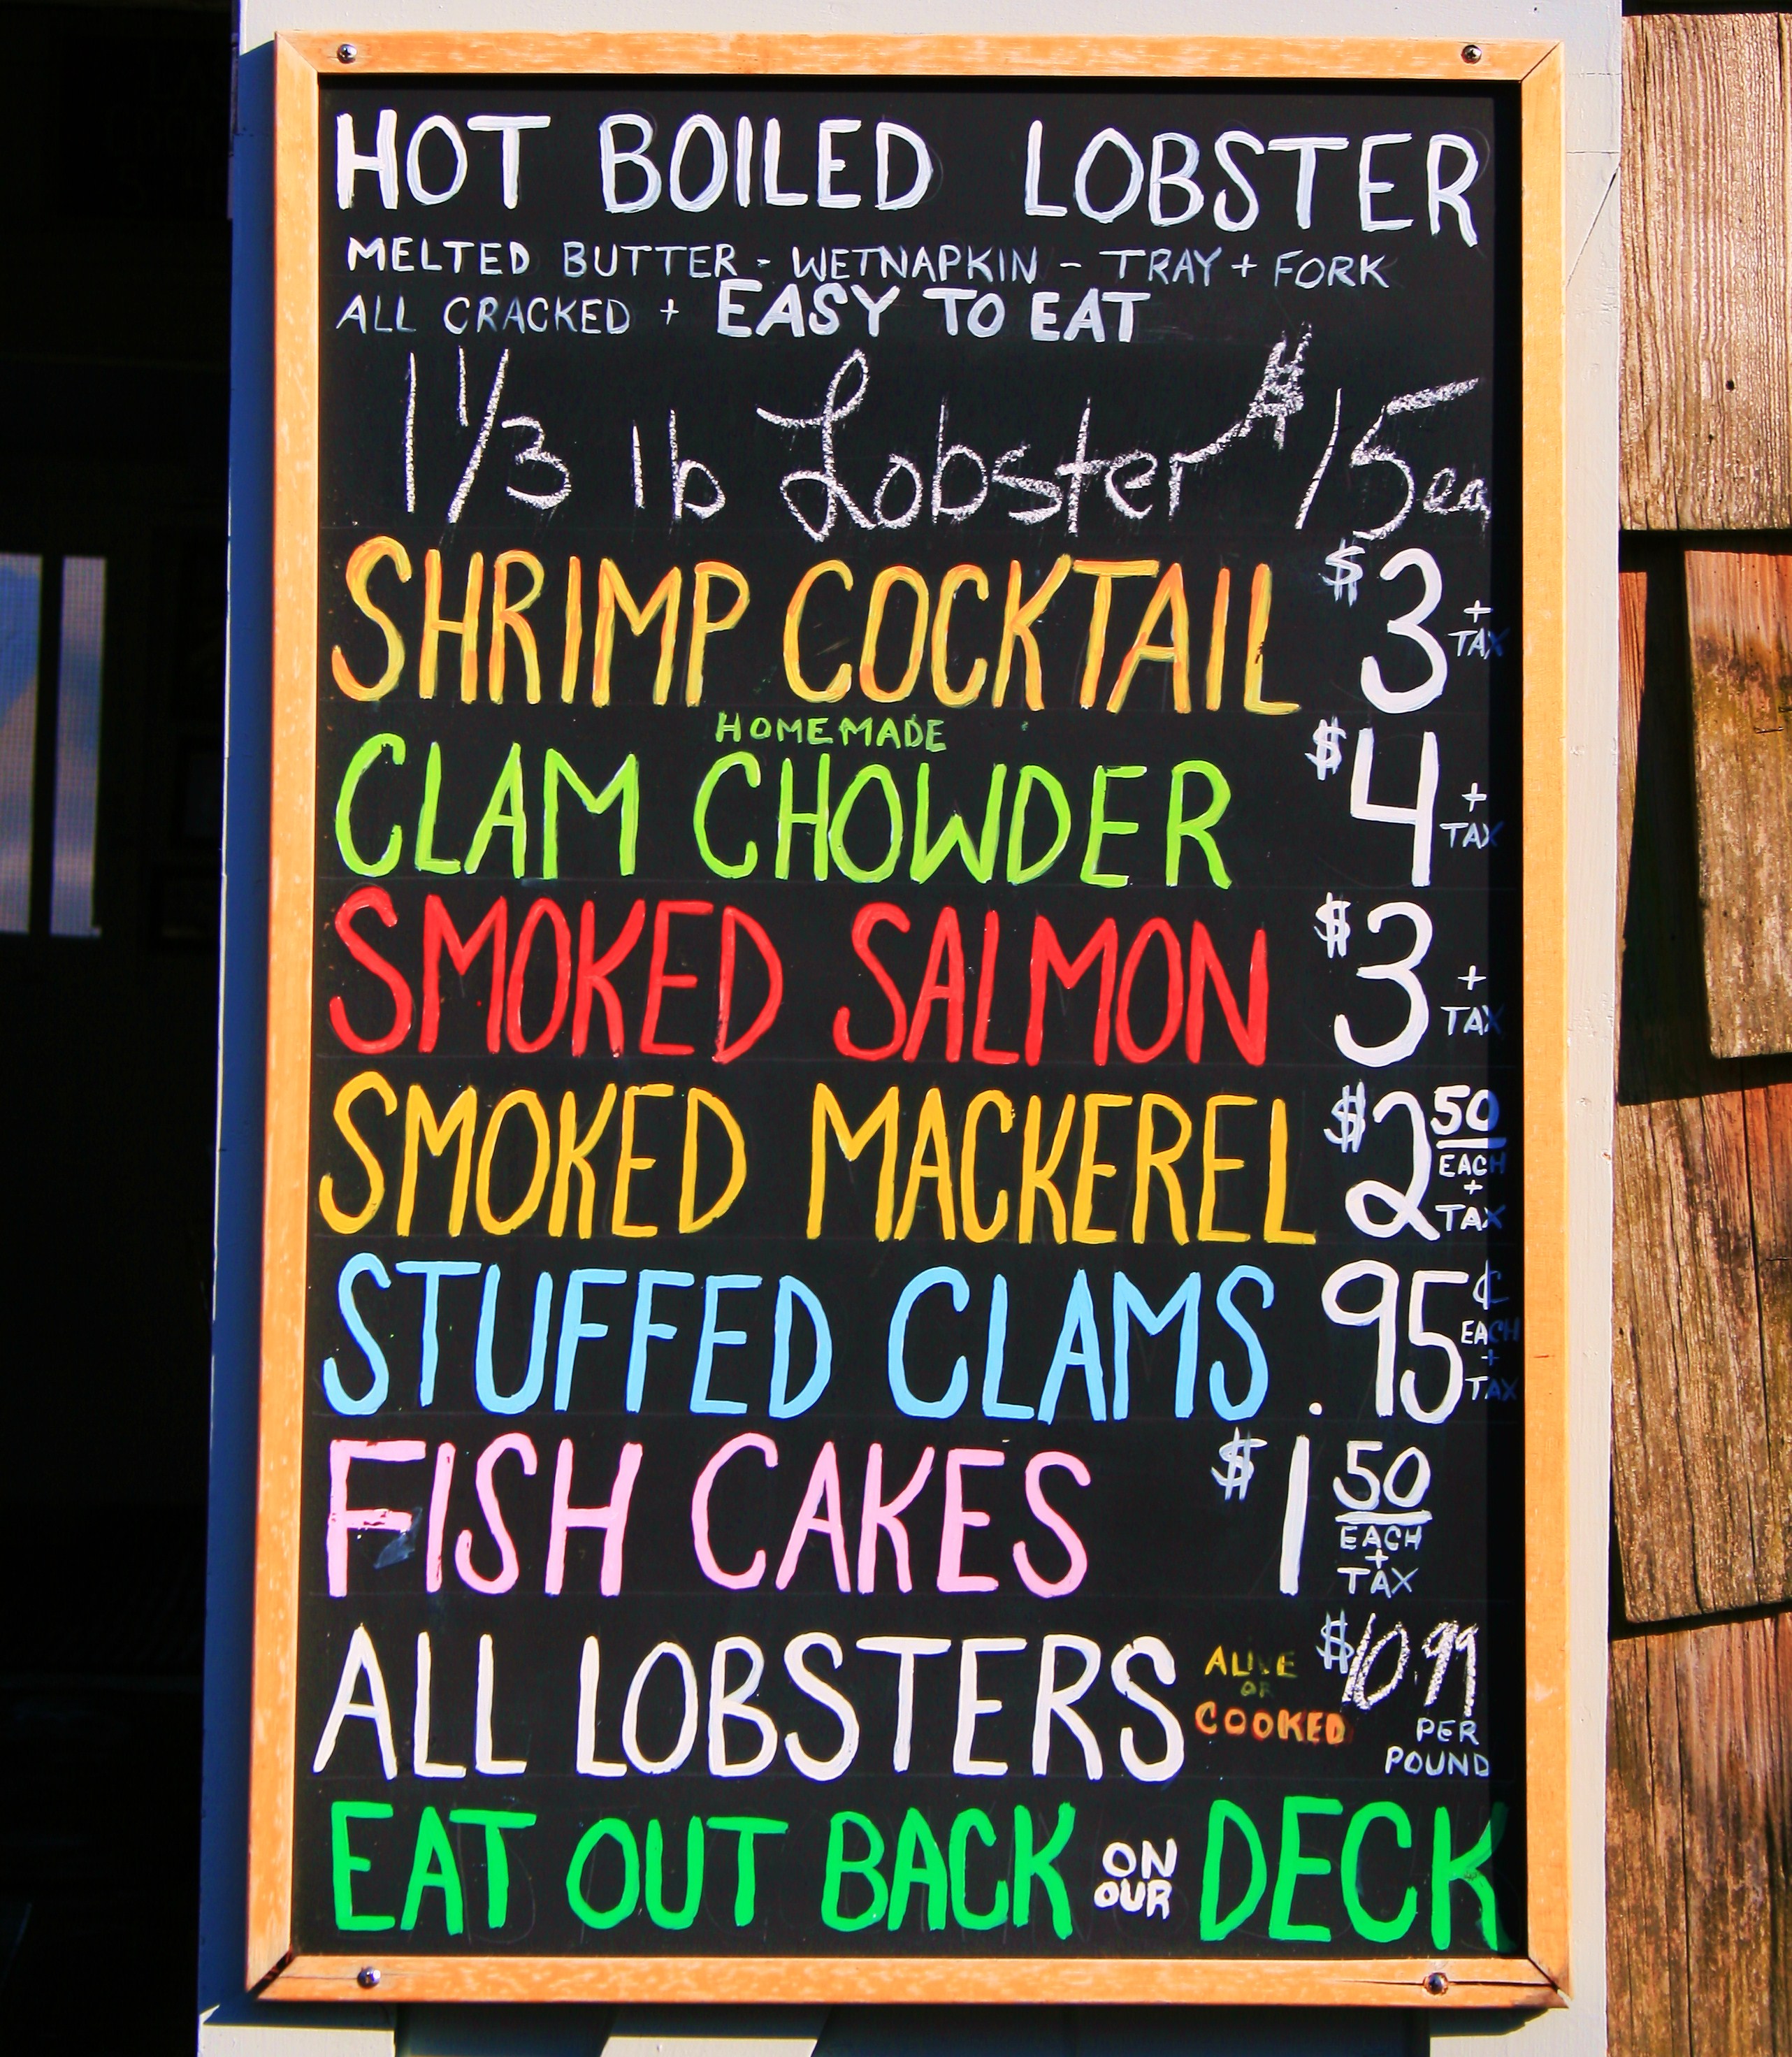 HOT BOILED LOBSTER
MELTED BUTTER - WETNAPKIN - TRAY + FORK
ALL CRACKED + EASY TO EAT
1 1/3 lb Lobster $15 ea
SHRIMP COCKTAIL $3 + TAX
HOMEMADE
CLAM CHOWDER $4 + TAX
SMOKED SALMON $3 + TAX
SMOKED MACKEREL $2 50 EACH + TAX
STUFFED CLAMS .95¢ EACH + TAX
FISH CAKES $1 50 EACH + TAX
ALL LOBSTERS ALIVE OR COOKED $10.99 PER POUND
EAT OUT BACK ON OUR DECK